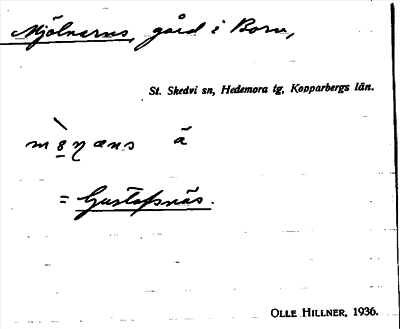 Mjölnarns, gård i Born,
St. Skedvi sn, Hedemora tg, Kopparbergs län.
ä
= Gustafsnäs.
OLLE HILLNER, 1936.